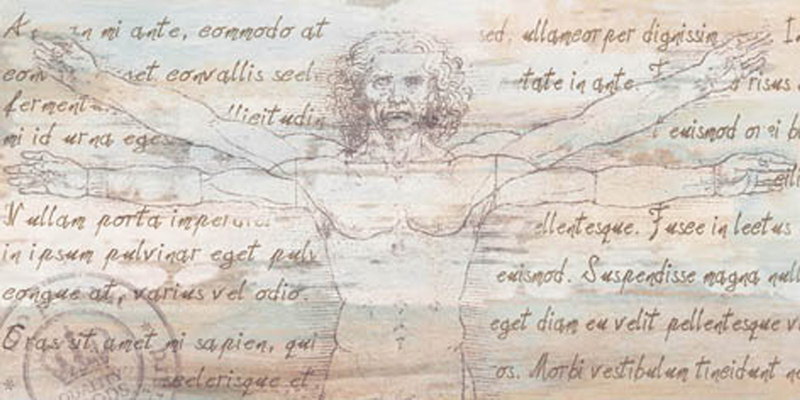 in mi ante, commodo at
convallis scel
ferment
mi id urna eges
Nullam porta
in ipsum pulvinar eget pulv
congue at, varius vel odio.
Cras sit amet mi sapien, qui
scelerisque et
QUALITY
sed, ullamcorper dignissim
tate in ante.
risus
euismod
ellentesque. Fusce in lectus
euismod. Suspendisse magna null
eget diam eu velit pellentesque v
os. Morbi vestibulum tincidunt